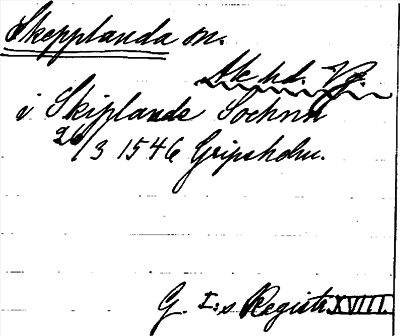 Skepplanda sn.
Ale hd. Vg.
i Skiplande Sochnn
20/3 1546 Gripsholm.
G. I:s Registr. XVIII.